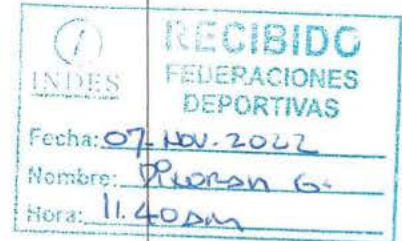 RECIBIDO
INDES
FEDERACIONES
DEPORTIVAS
Fecha: 07-NOV. 2022
Nombre: G.
Hora: 11.40am